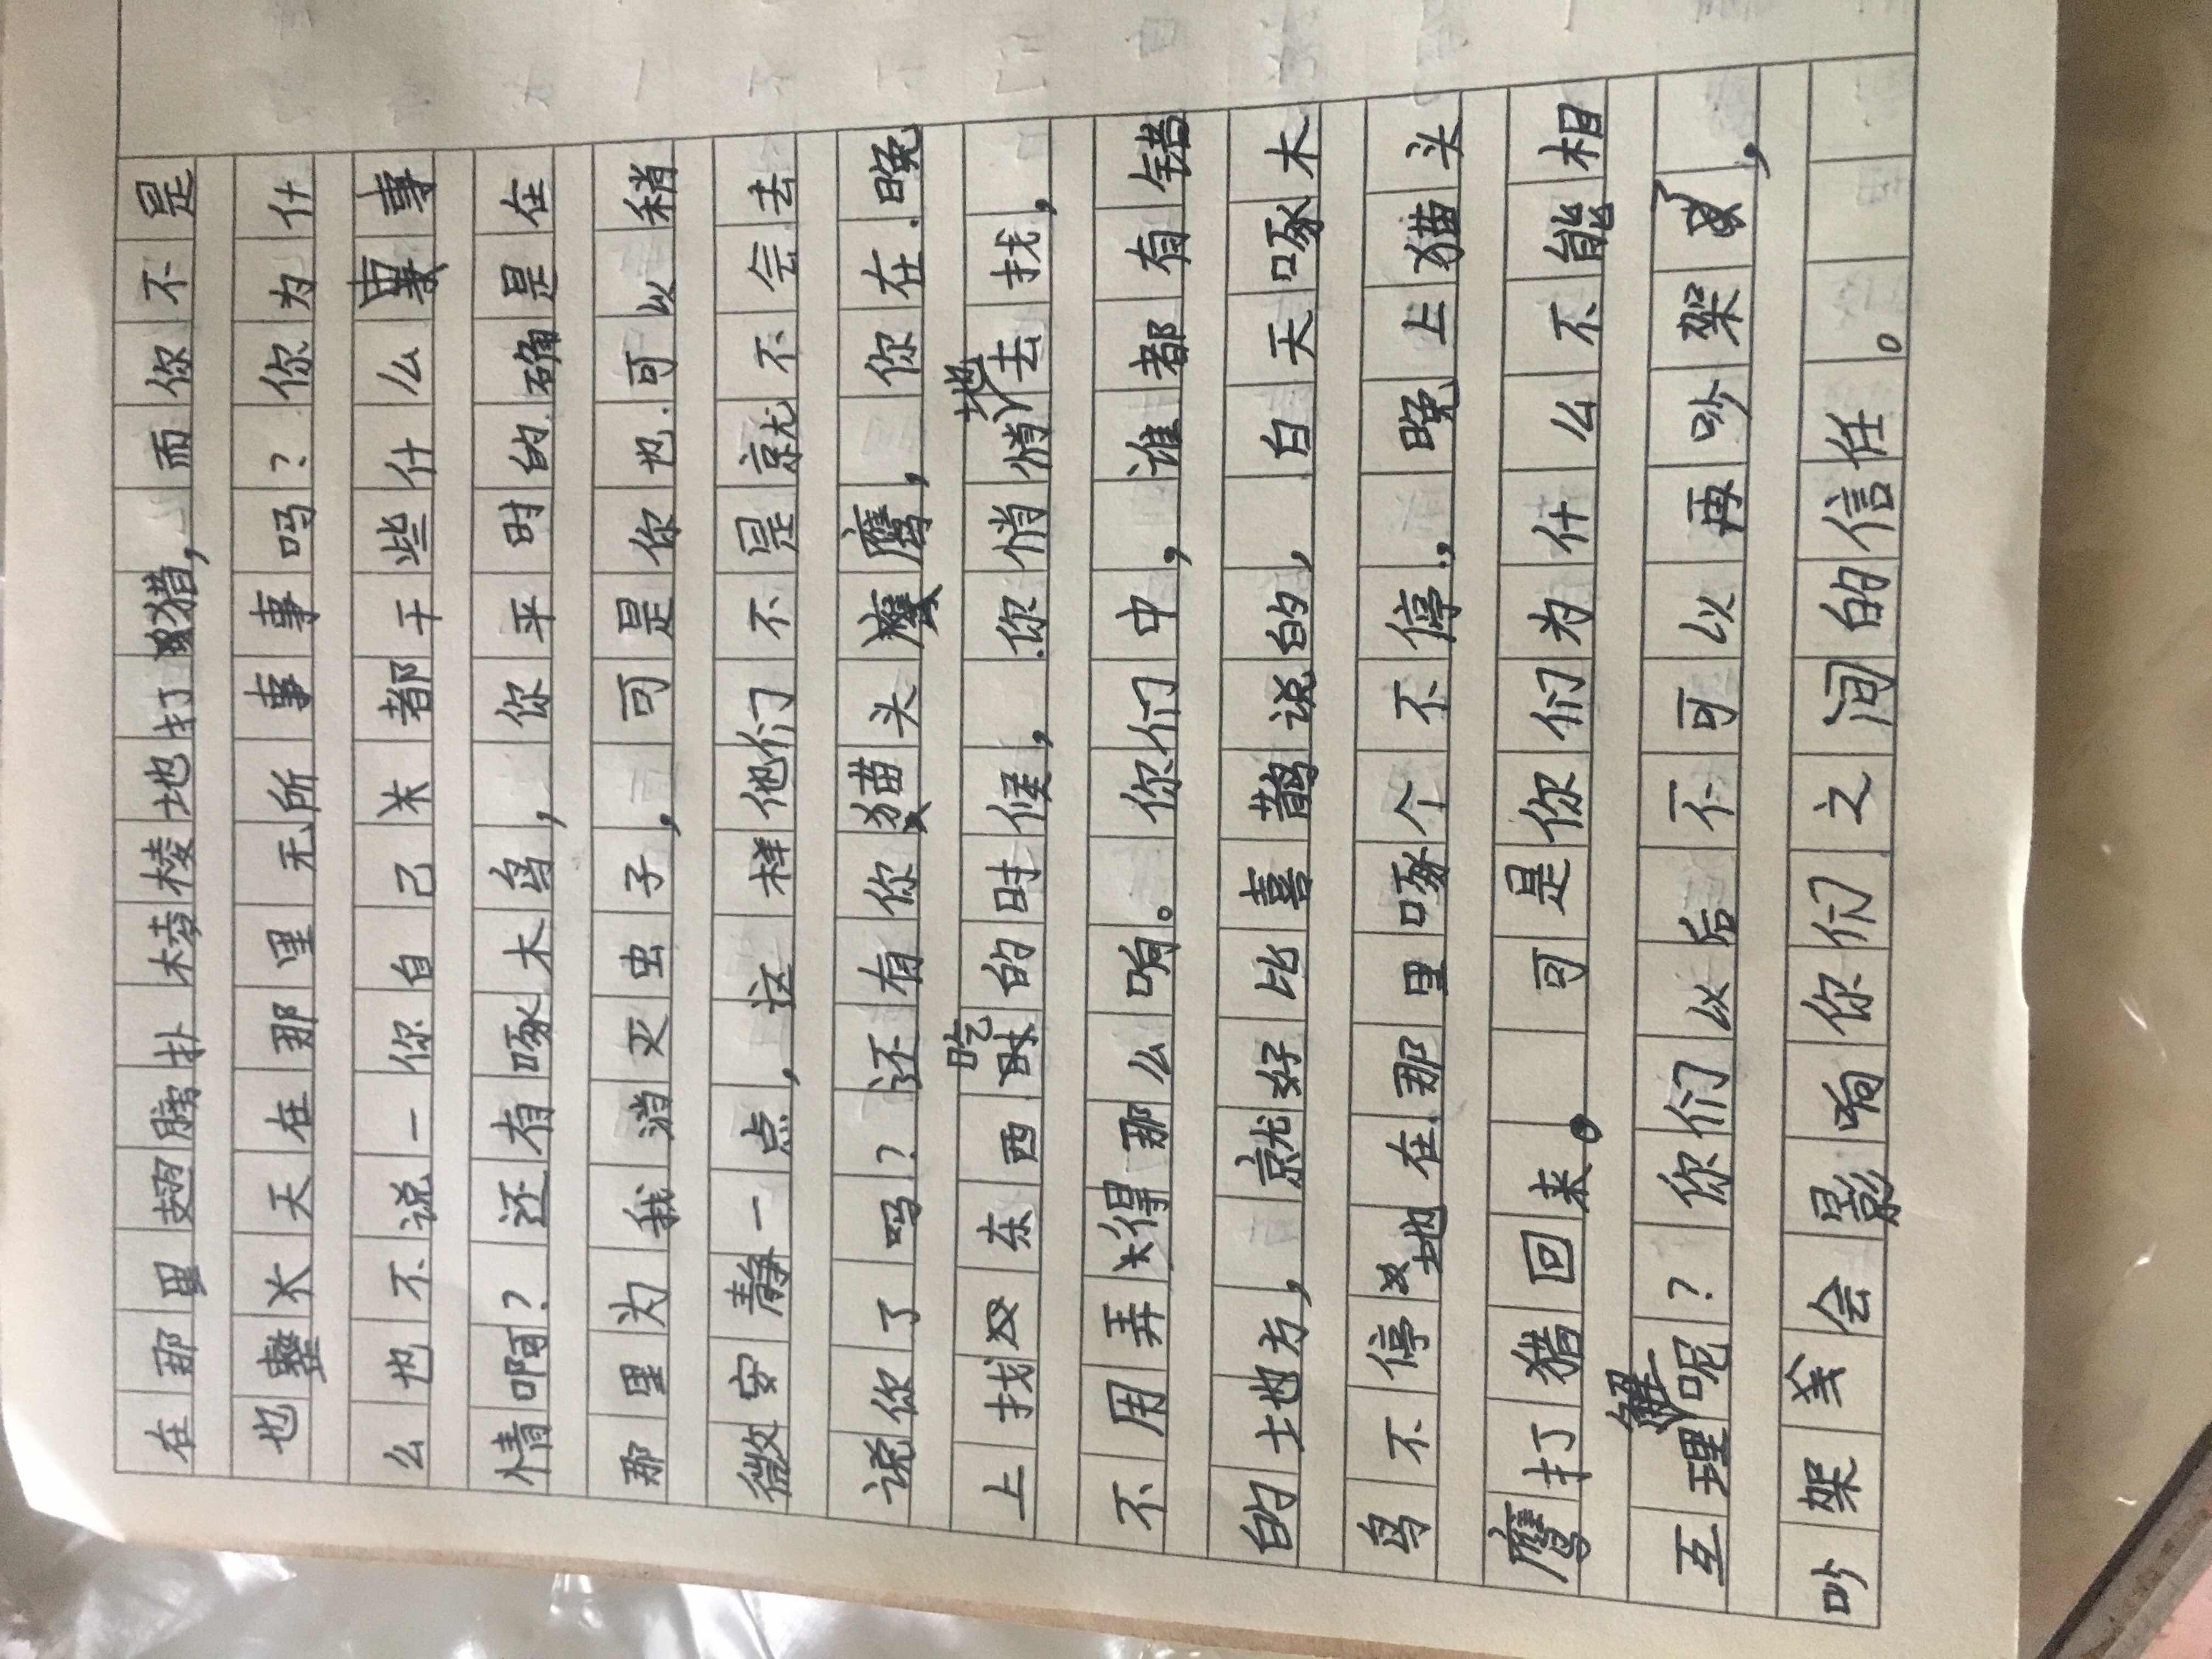 在那里翅膀扑棱棱地打猎，而你不是
也整天在那里无所事事吗？你为什
么也不说一你自己关都干些什么事
情啊？还有啄木鸟，你平时的确是在
那里为我消灭虫子，可是你也可以稍
微安静一点，这样他们不是就不会去
说你了吗？还有你猫头鹰，你在晚
上找东西吃的时候，你悄悄地去找，
不用弄得那么响。你们中，谁都有错
的地方，就好比喜鹊说的，白天啄木
鸟不停地在那里啄个不停，晚上猫头
鹰打猎回来。可是你们为什么不能相
互理解呢？你们以后不可以再吵架，
吵架会影响你们之间的信任。